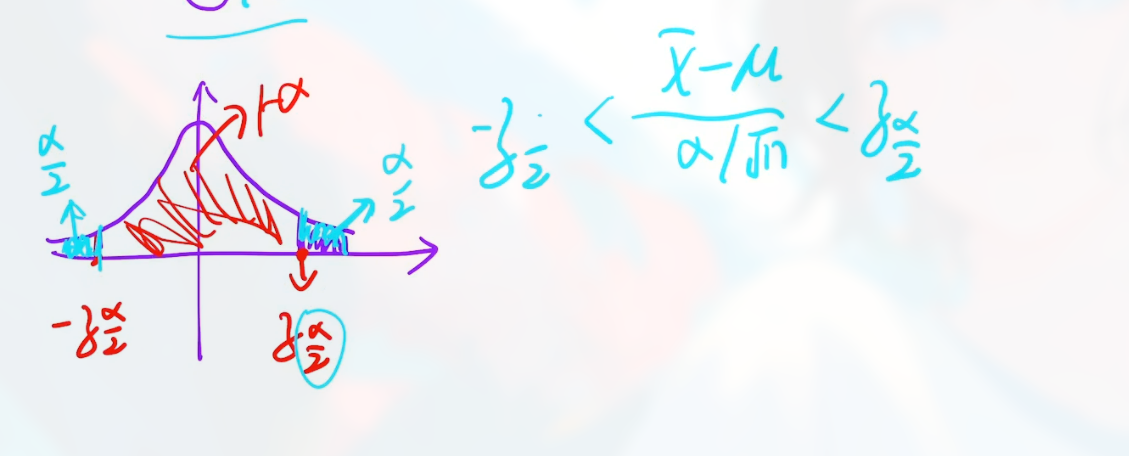 1-α
α/2
α/2
-z α/2
z α/2
-z /2 < (x̄-μ)/(α/√n) < z α/2